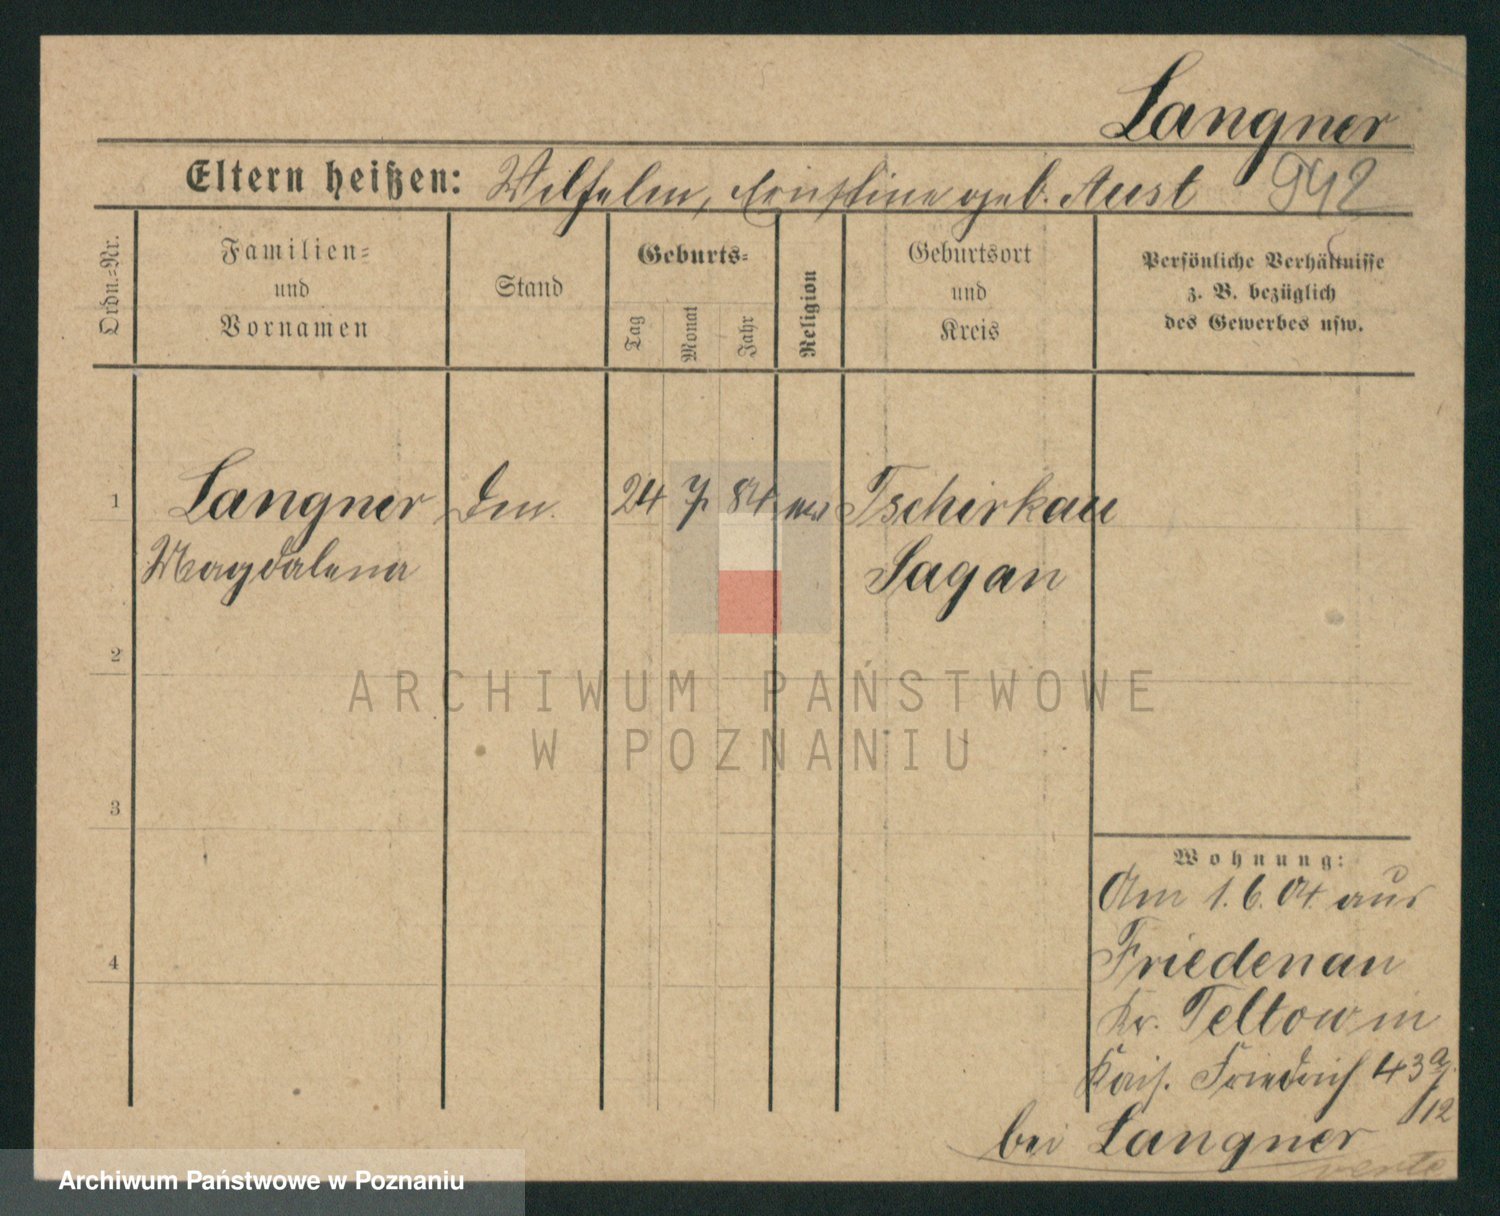 Langner
Eltern heißen: Wilhelm, Ernstine geb. Aust 942
Ordn.=Nr.
Familien=
und
Vornamen
Stand
Geburts=
Tag
Monat
Jahr
Religion
Geburtsort
und
Kreis
Persönliche Verhältnisse
z. B. bezüglich
des Gewerbes usw.
1 Langner 24 7 84 Tschirkau
Magdalena Sagan
2
ARCHIWUM PAŃSTWOWE
W POZNANIU
3
Wohnung:
Am 1.6.04. aus
Friedenau
4
Kr. Teltow in
Kais. Friedrich 43a/12
bei Langner
verte
Archiwum Państwowe w Poznaniu